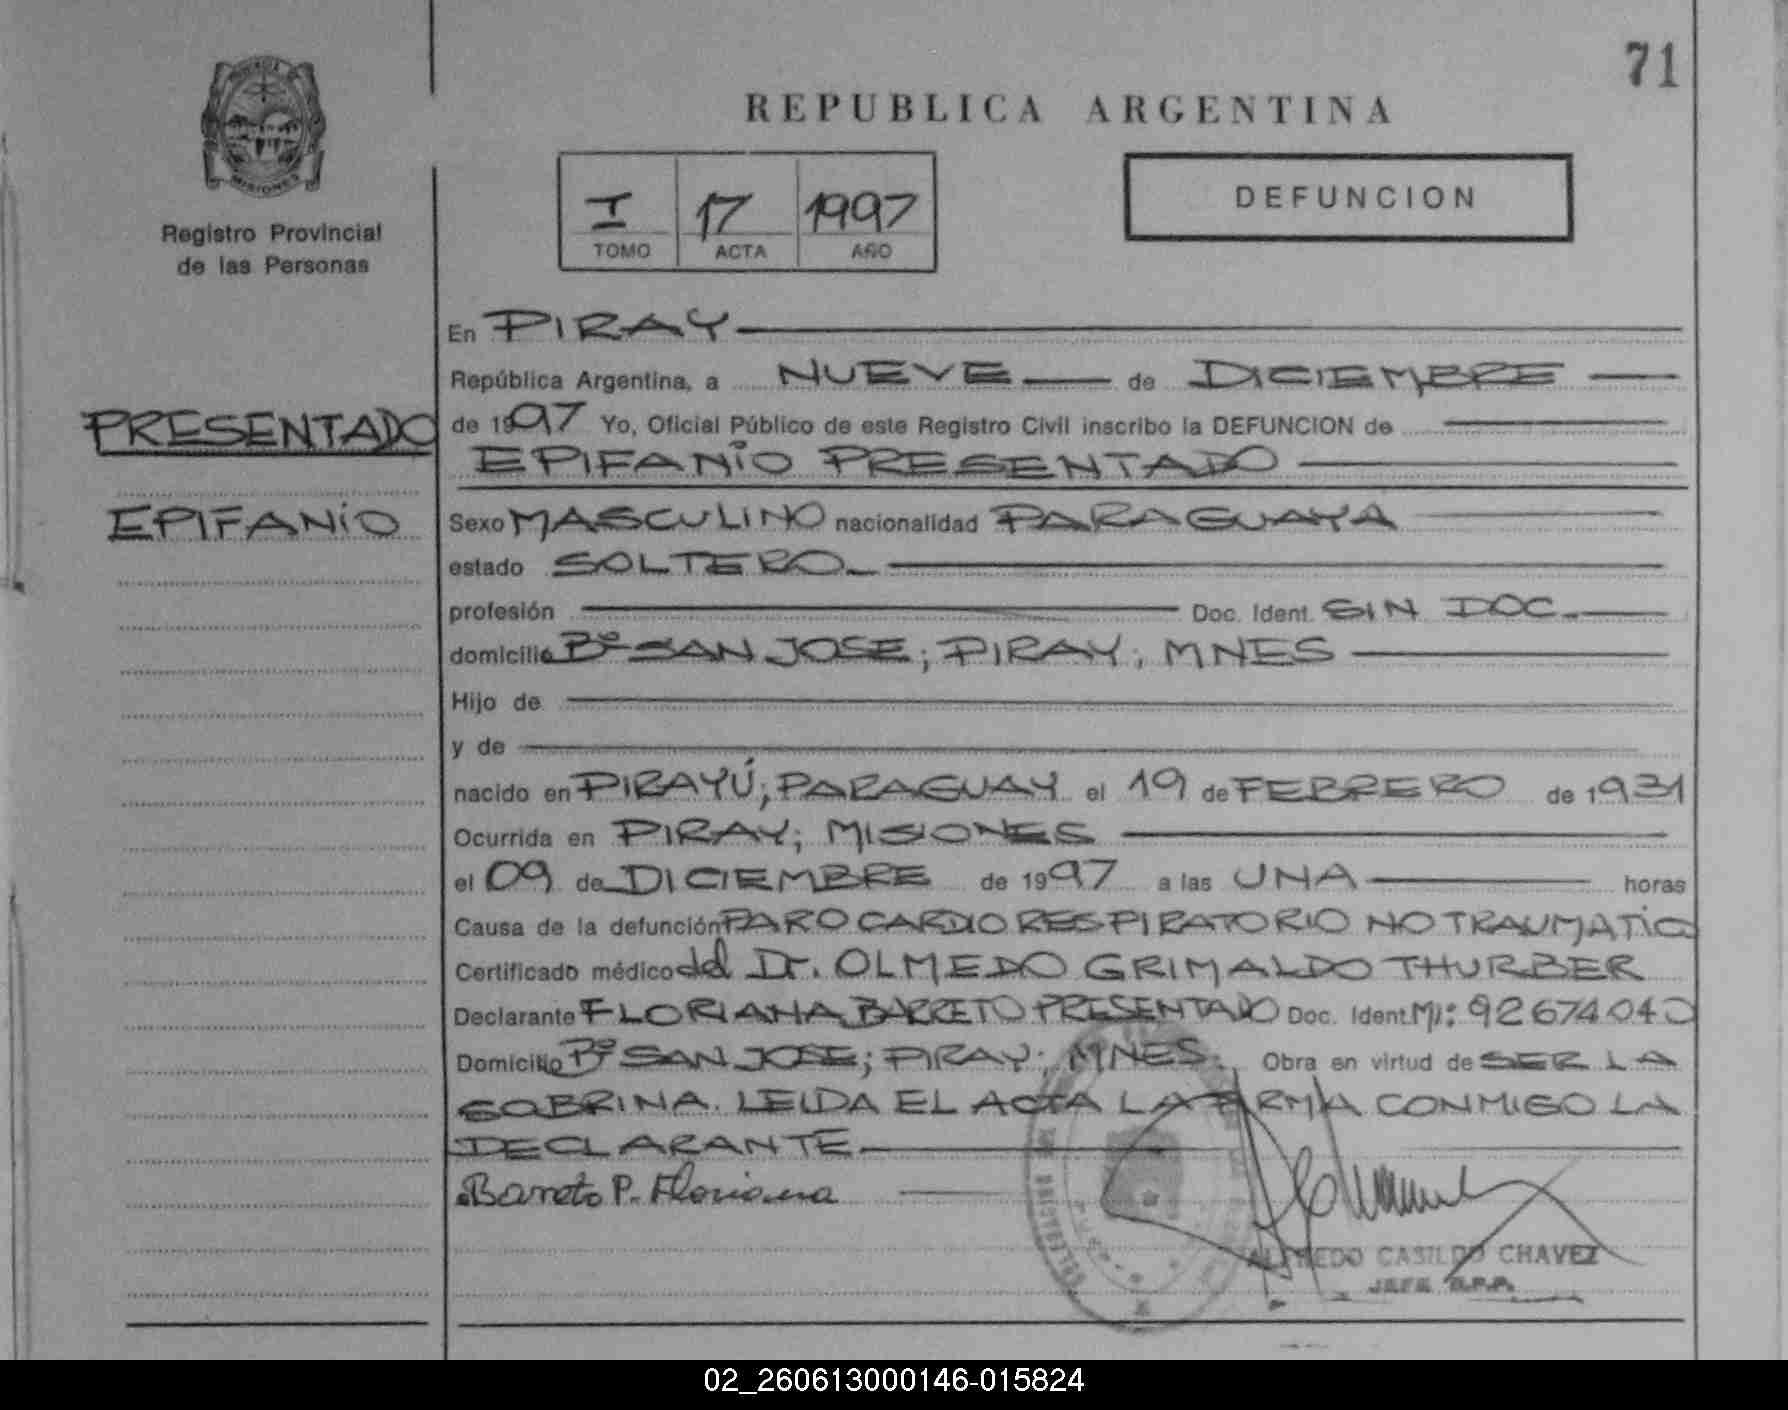 71
REPUBLICA ARGENTINA
MISIONES
Registro Provincial
de las Personas
I 17 1997
TOMO ACTA AÑO
DEFUNCION
PRESENTADO
EPIFANIO
En PIRAY
República Argentina, a NUEVE de DICIEMBRE
de 1997 Yo, Oficial Público de este Registro Civil inscribo la DEFUNCION de
EPIFANIO PRESENTADO
Sexo MASCULINO nacionalidad PARAGUAYA
estado SOLTERO
profesión Doc. Ident. SIN DOC.
domicilio Bº SAN JOSE; PIRAY; MNES
Hijo de
y de
nacido en PIRAYÚ; PARAGUAY el 19 de FEBRERO de 1931
Ocurrida en PIRAY; MISIONES
el 09 de DICIEMBRE de 1997 a las UNA horas
Causa de la defunción PARO CARDIO RESPIRATORIO NO TRAUMATICO
Certificado médico del Dr. OLMEDO GRIMALDO THURBER
Declarante FLORIANA BARRETO PRESENTADO Doc. Ident. MI: 92674040
Domicilio Bº SAN JOSE; PIRAY; MNES. Obra en virtud de SER LA
SOBRINA. LEIDA EL ACTA LA FIRMA CONMIGO LA
DECLARANTE
Barreto P. Floriana
ALFREDO CASILDO CHAVEZ
JEFE R.P.P.
02_260613000146-015824